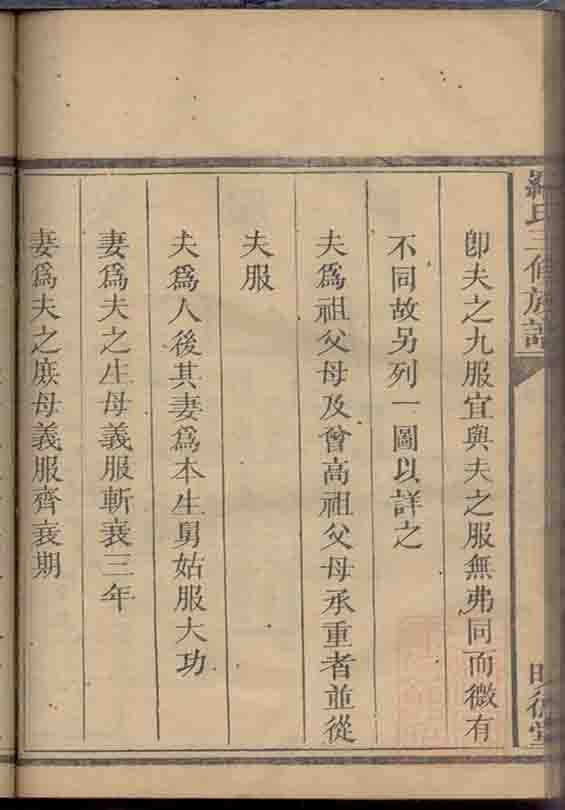 羅氏三修族譜
卽夫之九服宜與夫之服無弗同而微有
不同故另列一圖以詳之
夫爲祖父母及曾高祖父母承重者並從
夫服
夫爲人後其妻爲本生舅姑服大功
妻爲夫之生母義服斬衰三年
妻爲夫之庶母義服齊衰期